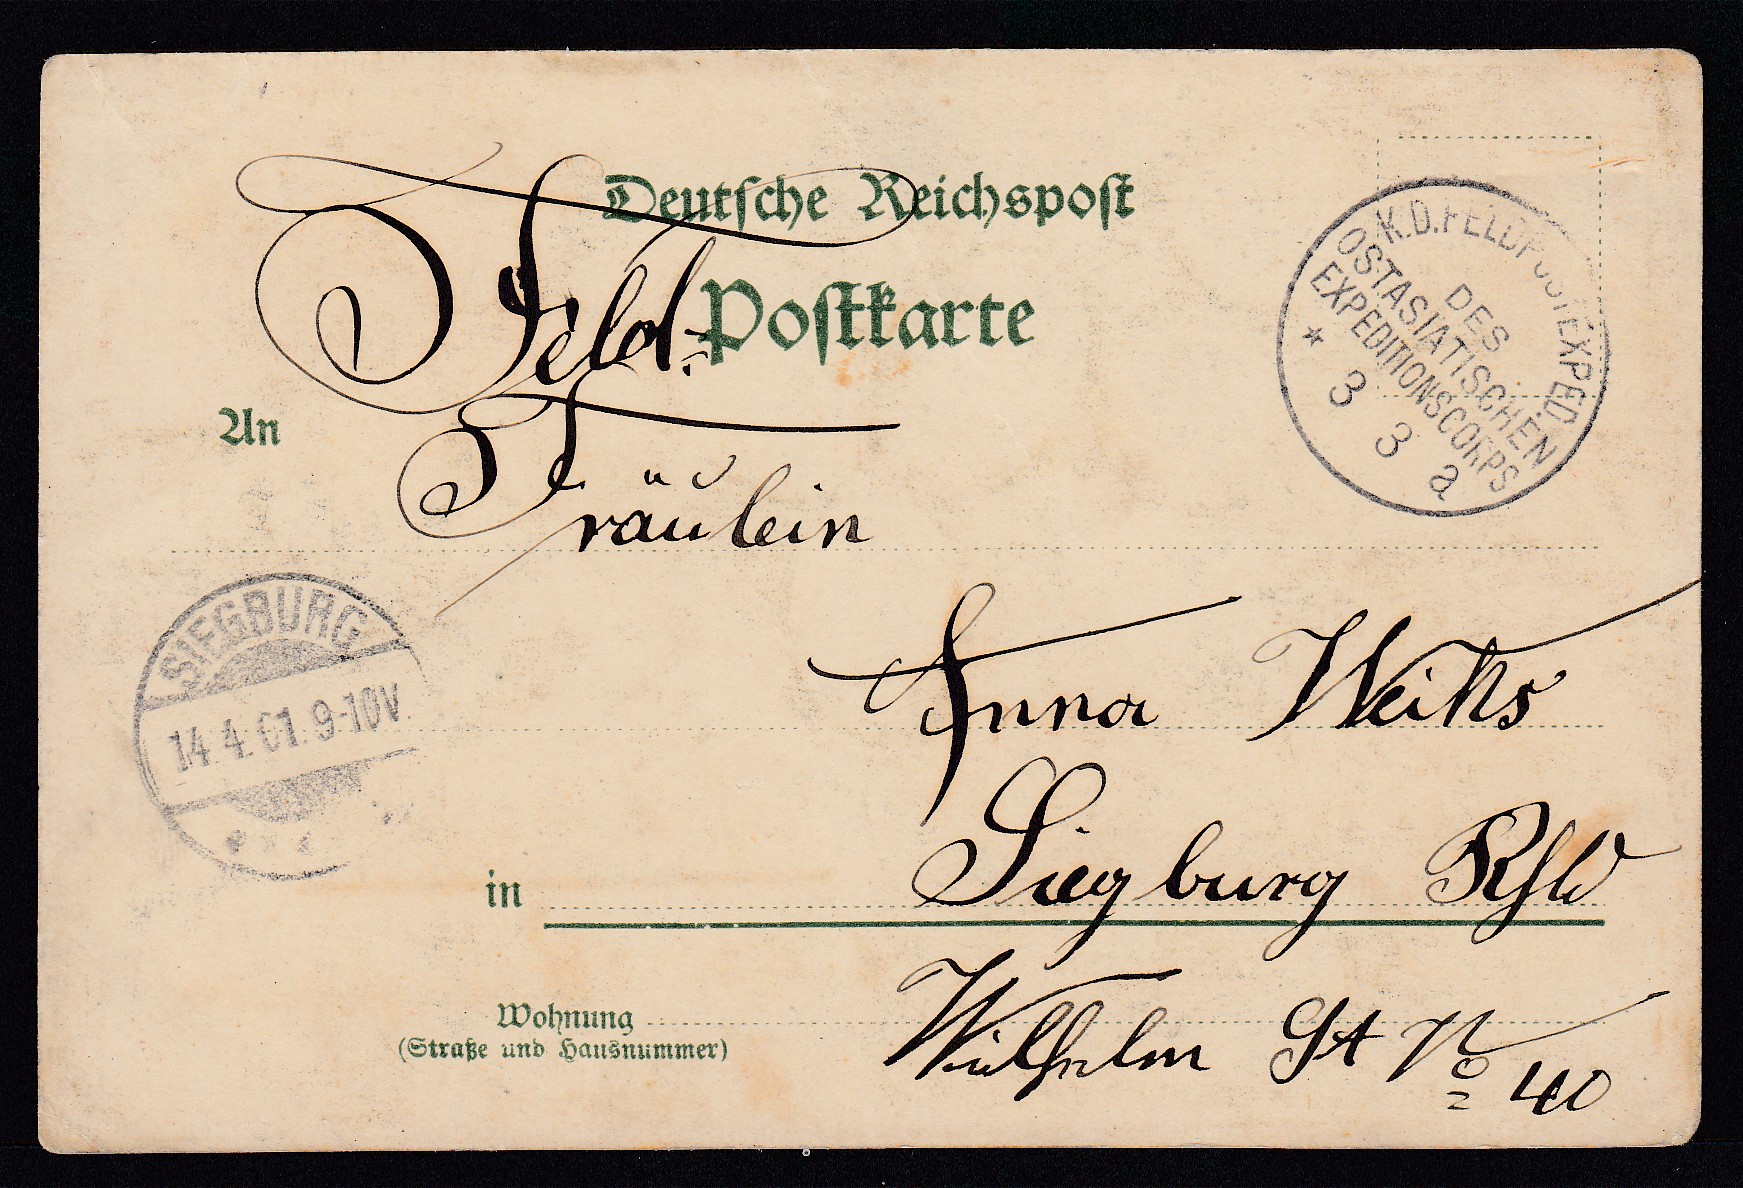 Deutsche Reichspost
Feld-Postkarte
K.D.FELDPOSTEXPED.
DES
OSTASIATISCHEN
EXPEDITIONSCORPS
* 3 3 a
An
Fräulein
SIEGBURG
14.4.01. 9-10V.
Anna Weiks
in Siegburg
Wohnung Wilhelm St No 40
(Straße und Hausnummer)